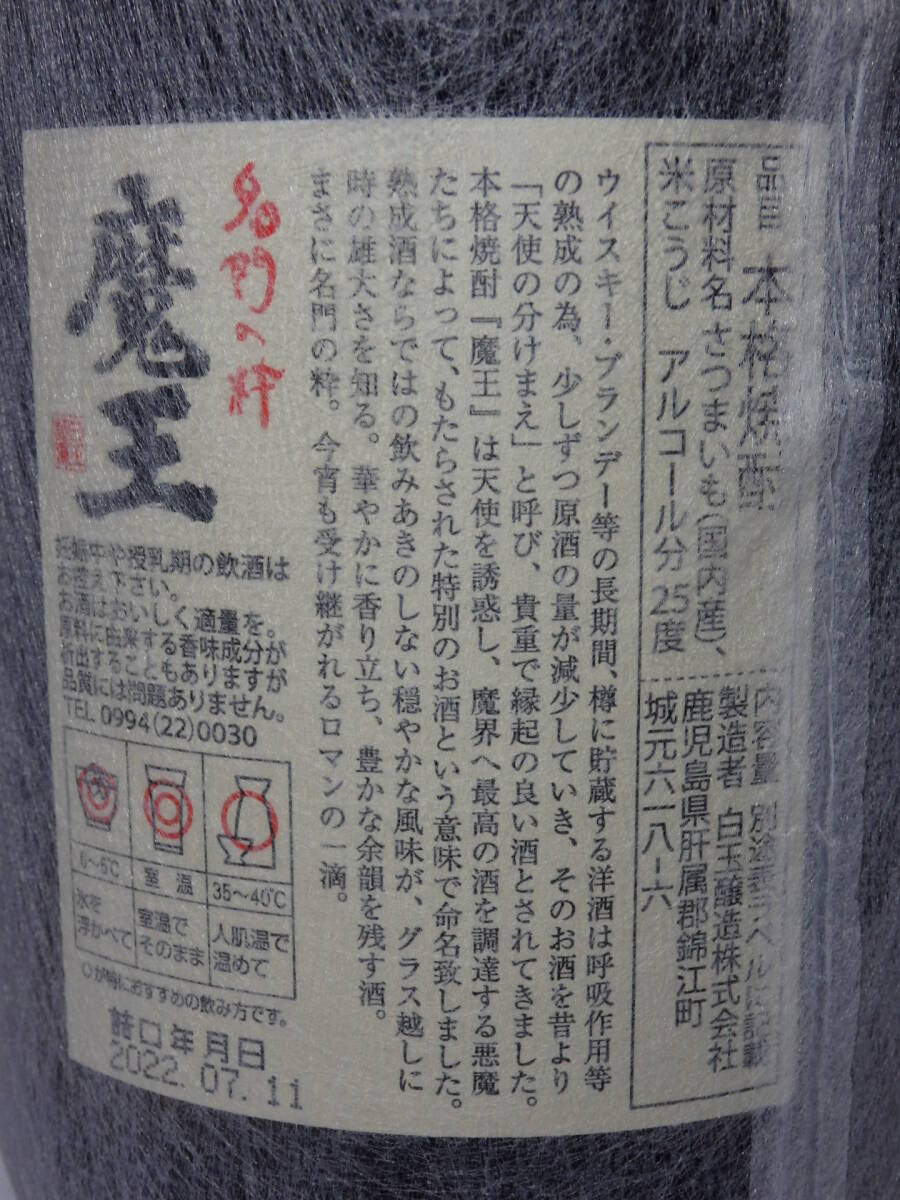 品目 本格焼酎
原材料名 さつまいも(国内産)、
米こうじ アルコール分 25度
内容量 別途表ラベルに記載
製造者 白玉醸造株式会社
鹿児島県肝属郡錦江町
城元六一八ー六
ウイスキー・ブランデー等の長期間、樽に貯蔵する洋酒は呼吸作用等
の熟成の為、少しずつ原酒の量が減少していき、そのお酒を昔より
「天使の分けまえ」と呼び、貴重で縁起の良い酒とされてきました。
本格焼酎『魔王』は天使を誘惑し、魔界へ最高の酒を調達する悪魔
たちによって、もたらされた特別のお酒という意味で命名致しました。
熟成酒ならではの飲みあきのしない穏やかな風味が、グラス越しに
時の雄大さを知る。華やかに香り立ち、豊かな余韻を残す酒。
まさに名門の粋。今宵も受け継がれるロマンの一滴。
名門の粋
魔王
妊娠中や授乳期の飲酒は
お控え下さい。
お酒はおいしく適量を。
原料に由来する香味成分が
析出することもありますが
品質には問題ありません。
TEL 0994(22)0030
0～6℃ 室温 35～40℃
氷を 室温で 人肌温で
浮かべて そのまま 温めて
○が特におすすめの飲み方です。
詰口年月日
2022.07.11